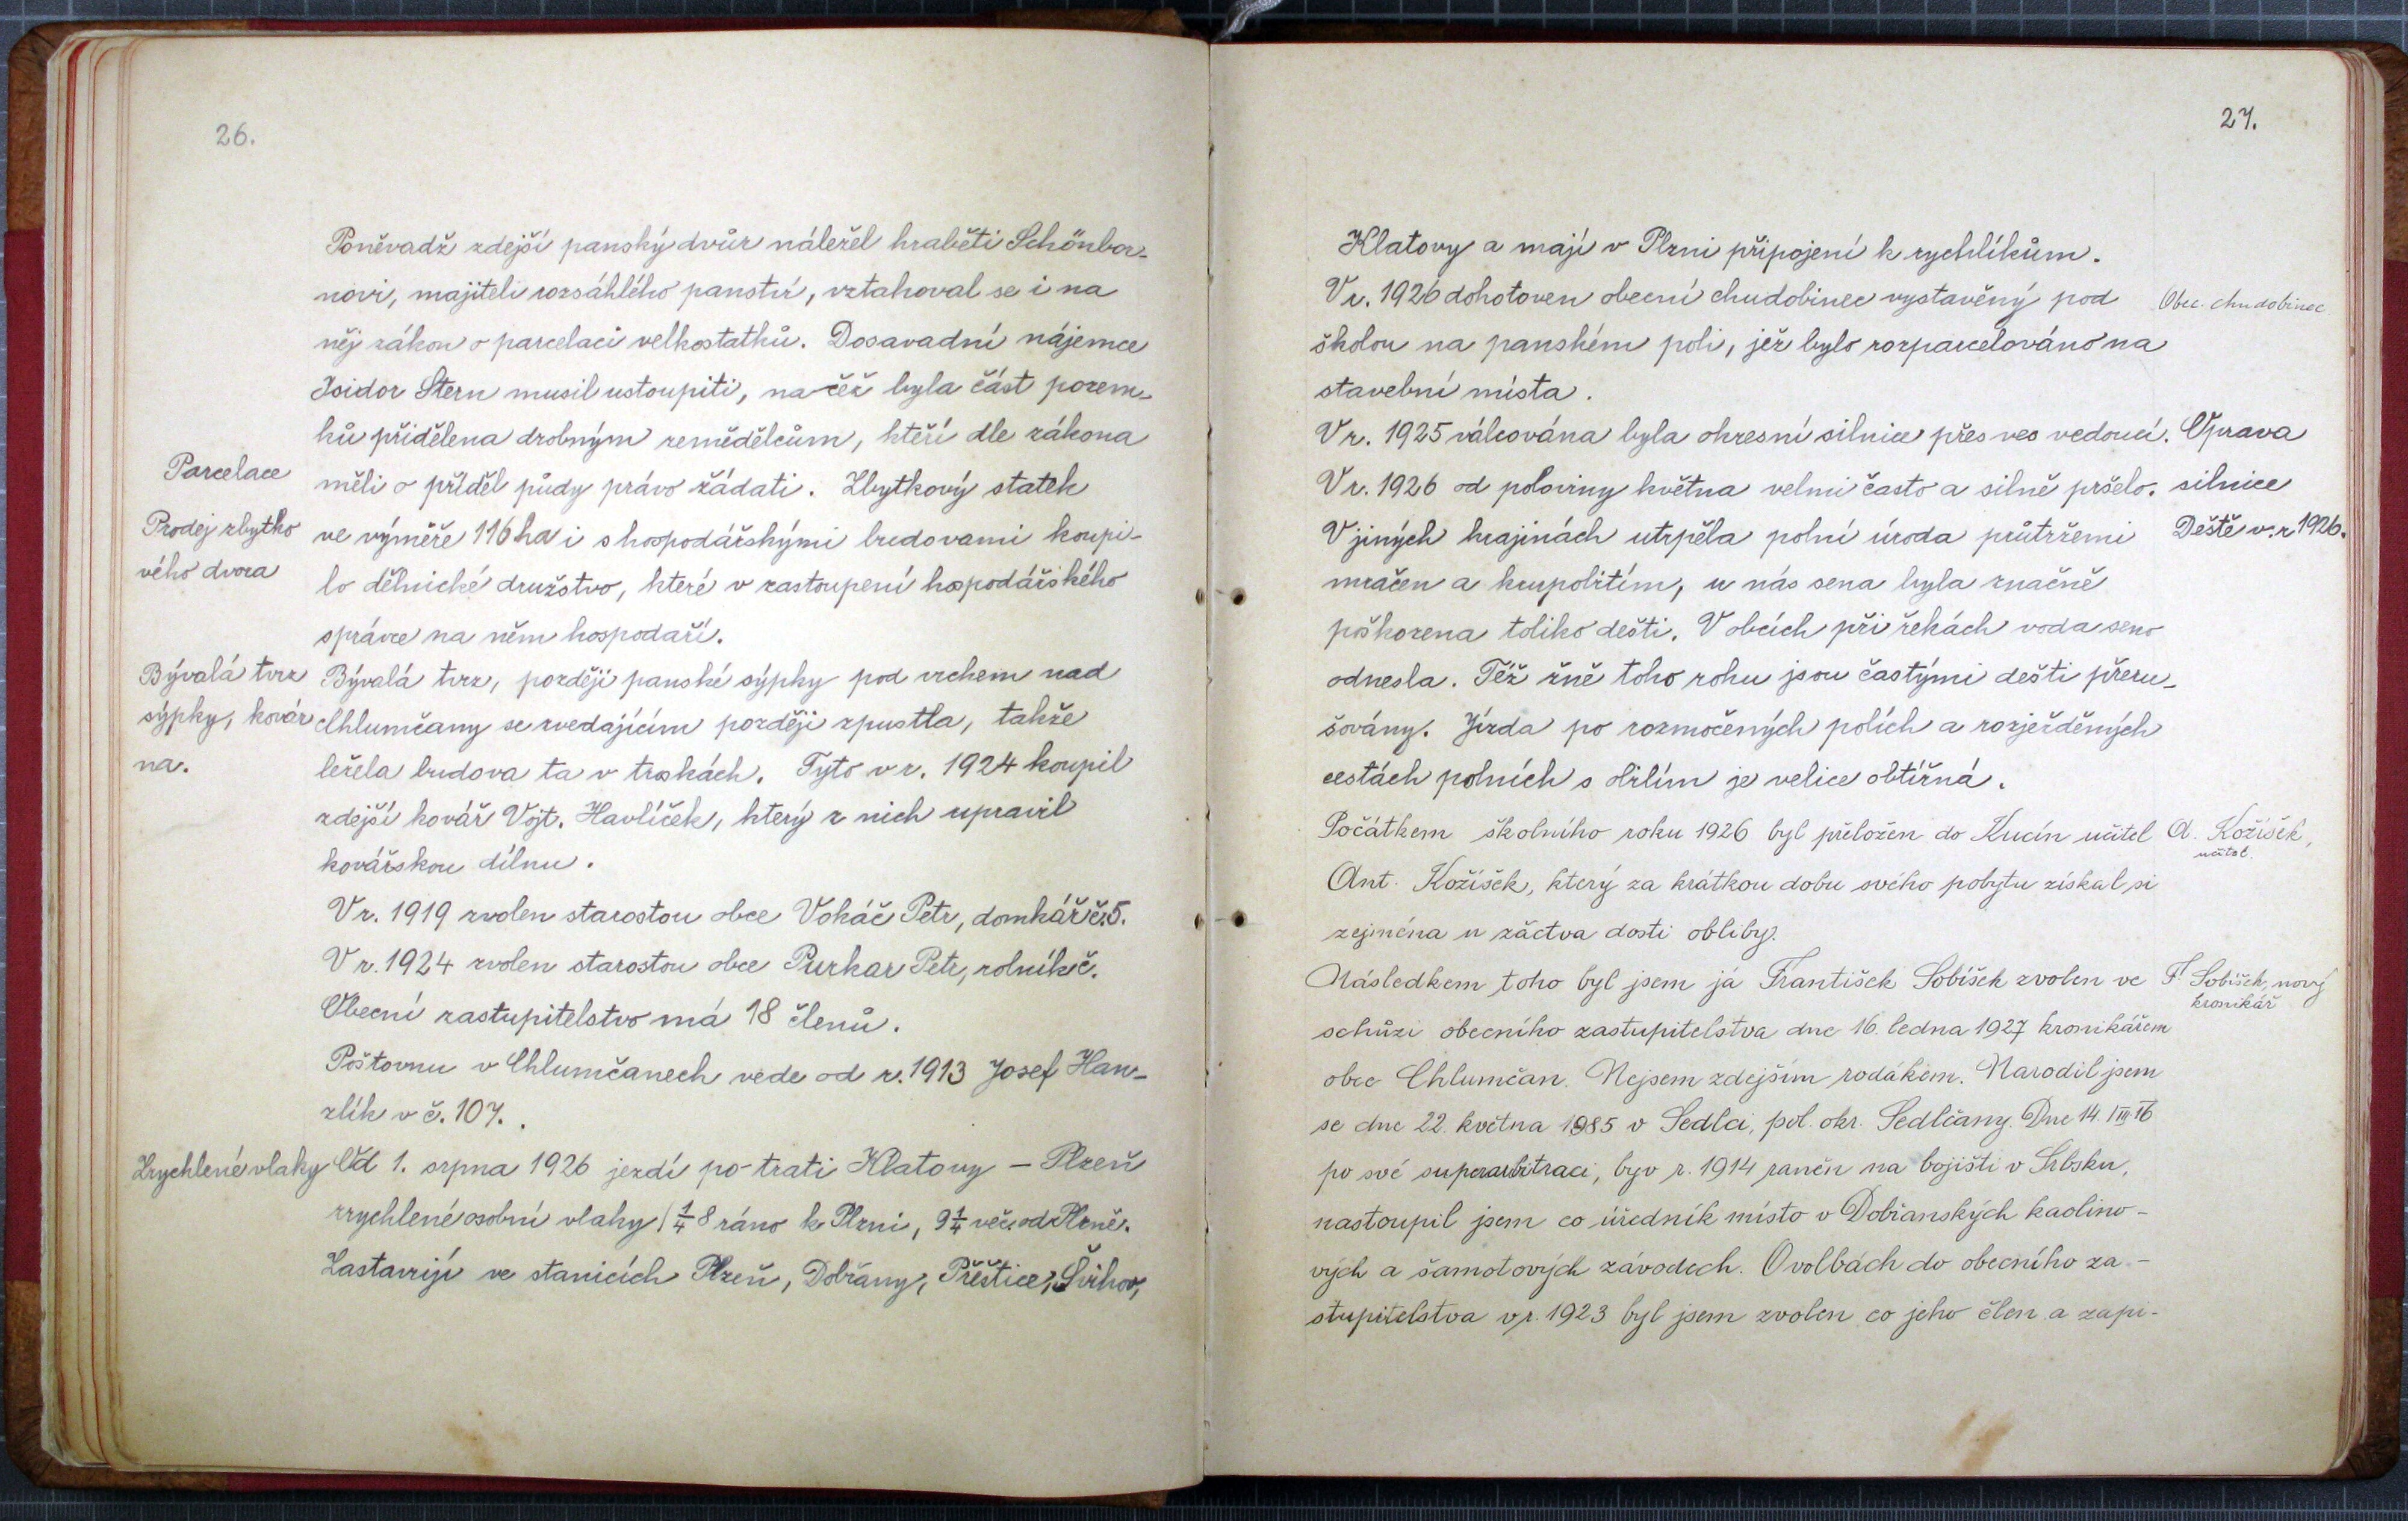 26.
Poněvadž zdejší panský dvůr náležel hraběti Schönbor-
novi, majiteli rozsáhlého panství, vztahoval se i na
něj zákon o parcelaci velkostatků. Dosavadní nájemce
Isidor Stern musil ustoupiti, načež byla část pozem-
ků přidělena drobným zemědělcům, kteří dle zákona
Parcelace
měli o příděl půdy právo žádati. Zbytkový statek
Prodej zbytko
ve výměře 116 ha i s hospodářskými budovami koupi-
vého dvora
lo dělnické družstvo, které v zastoupení hospodářského
správce na něm hospodaří.
Bývalá tvrz
Bývalá tvrz, později panské sýpky pod vrchem nad
sýpky, kovár
Chlumčany se zvedajícím později zpustla, takže
na.
ležela budova ta v troskách. Tyto v r. 1924 koupil
zdejší kovář Vojt. Havlíček, který z nich upravil
kovářskou dílnu.
V r. 1919 zvolen starostou obce Vokáč Petr, domkář č. 5.
V r. 1924 zvolen starostou obce Purkar Petr, rolník č.
Obecní zastupitelstvo má 18 členů.
Poštovnu v Chlumčanech vede od r. 1913 Josef Han-
zlík v č. 107.
Zrychlené vlaky
Od 1. srpna 1926 jezdí po trati Klatovy – Plzeň
zrychlené osobní vlaky (¼ 8 ráno k Plzni, 9¼ več. od Plzně.
Zastavují ve stanicích Plzeň, Dobřany, Přeštice, Švihov,
27.
Klatovy a mají v Plzni připojení k rychlíkům.
V r. 1926 dohotoven obecní chudobinec vystavěný pod
Obec. chudobinec
školou na panském poli, jež bylo rozparcelováno na
stavební místa.
V r. 1925 válcována byla okresní silnice přes ves vedoucí.
Oprava
V r. 1926 od poloviny května velmi často a silně pršelo.
silnice
V jiných krajinách utrpěla polní úroda průtržemi
Deště v. r 1926.
mračen a krupobitím, u nás sena byla značně
poškozena toliko dešti. V obcích při řekách voda seno
odnesla. Též žně toho roku jsou častými dešti přeru-
šovány. Jízda po rozmočených polích a rozježděných
cestách polních s obilím je velice obtížná.
Počátkem školního roku 1926 byl přeložen do Kucín učitel
A. Kožíšek,
učitel.
Ant. Kožíšek, který za krátkou dobu svého pobytu získal si
zejména u žáctva dosti obliby.
Následkem toho byl jsem já František Sobíšek zvolen ve
F. Sobíšek, nový
kronikář
schůzi obecního zastupitelstva dne 16. ledna 1927 kronikářem
obce Chlumčan. Nejsem zdejším rodákem. Narodil jsem
se dne 22. května 1885 v Sedlci, pol. okr. Sedlčany. Dne 14. VIII 16
po své superarbitraci, byv r. 1914 raněn na bojišti v Srbsku,
nastoupil jsem co úředník místo v Dobřanských kaolino-
vých a šamotových závodech. O volbách do obecního za-
stupitelstva v r. 1923 byl jsem zvolen co jeho člen a zapi-